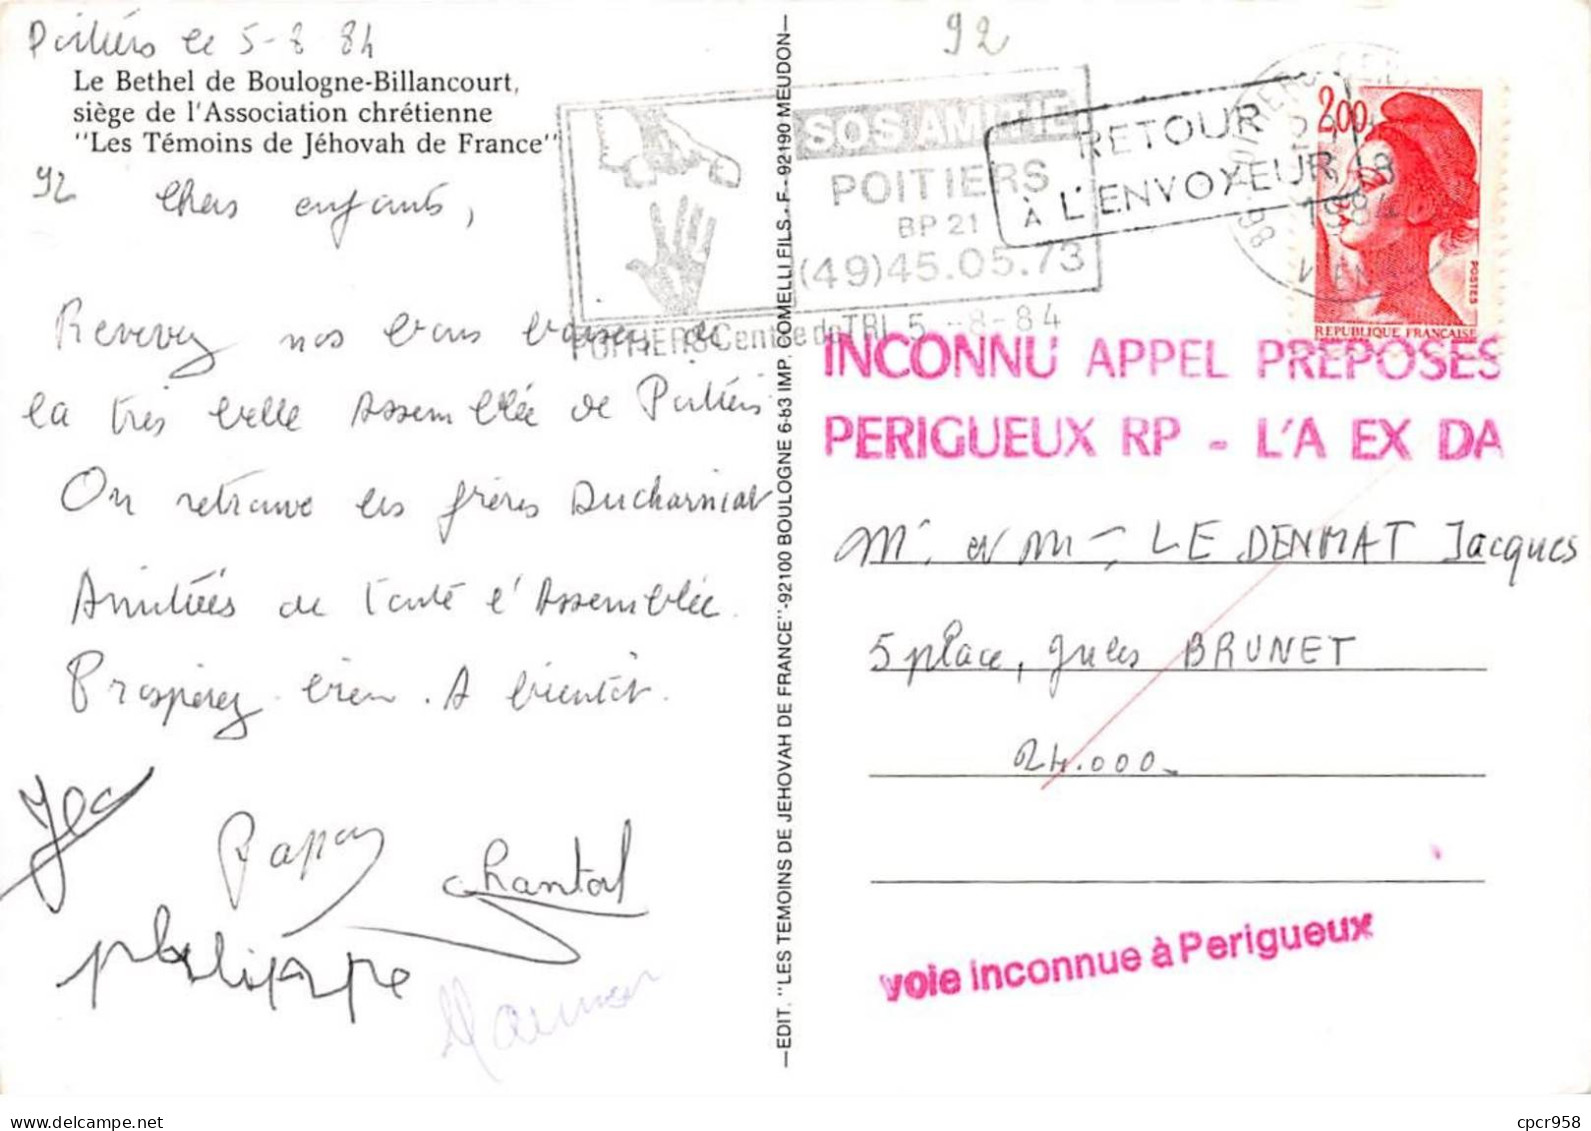 Poitiers le 5-8 84
Le Bethel de Boulogne-Billancourt,
siège de l'Association chrétienne
"Les Témoins de Jéhovah de France"
92 Chers enfants,
Recevez nos bons baisers de
la très belle Assemblée de Poitiers
On retrouve les frères Ducharniat
Amitiés de toute l'Assemblée.
Prospérez bien. A bientôt.
Papa
Chantal
philippe
Maman
EDIT. "LES TEMOINS DE JEHOVAH DE FRANCE"-92100 BOULOGNE 6-83 IMP. COMELLI FILS - F - 92190 MEUDON
92
SOS AMITIE
POITIERS
BP 21
(49)45.05.73
POITIERS Centre de TRI 5 -8-84
RETOUR
À L'ENVOYEUR
1984
2,00
POSTES
REPUBLIQUE FRANÇAISE
INCONNU APPEL PREPOSES
PERIGUEUX RP - L'A EX DA
Mr et Me LE DENMAT Jacques
5 place, Jules BRUNET
24.000
voie inconnue à Perigueux
delcampe.net
cpcr958